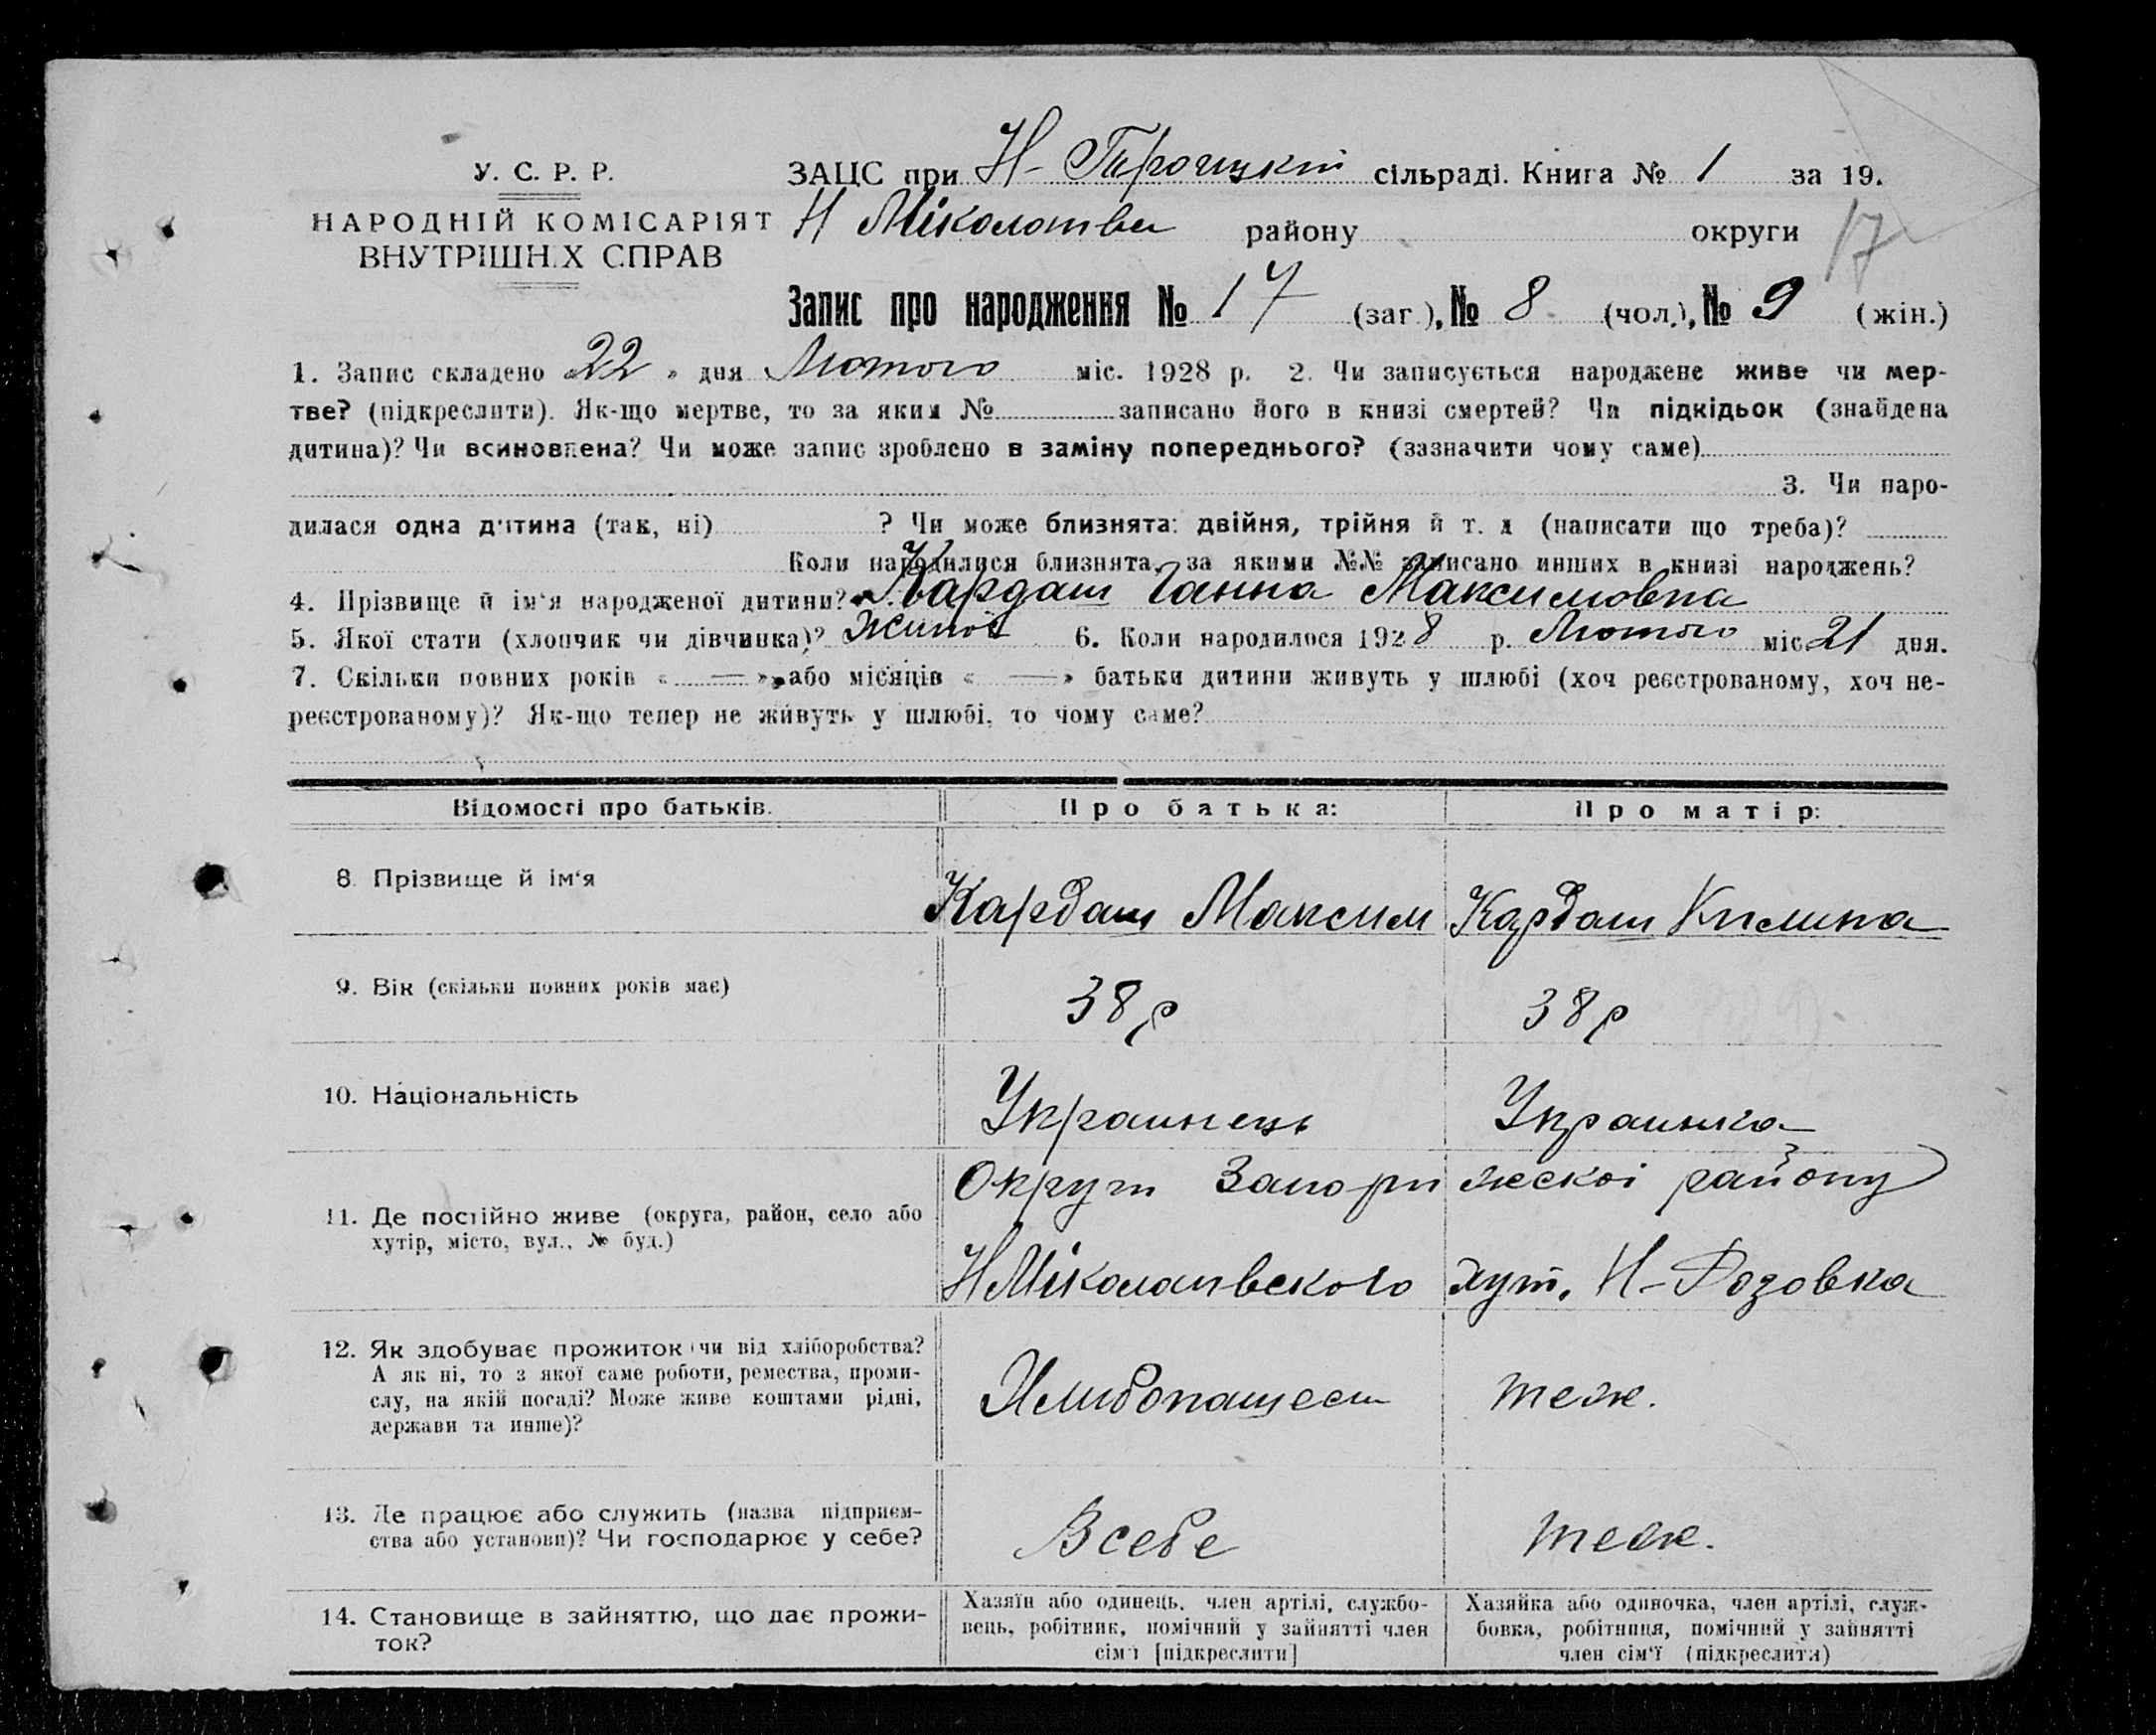 У. С. Р. Р.
НАРОДНІЙ КОМІСАРІЯТ
ВНУТРІШН.Х СПРАВ
ЗАЦС при Н- Троицкій сільраді. Книга № 1 за 19.
Н району округи
17
Запис про народження № 17 (заг.), № 8 (чол.), № 9 (жін.)
1. Запис складено «22» дня Лютого міс. 1928 р. 2. Чи записується народжене живе чи мер-
тве? (підкреслити). Як-що мертве, то за яким № записано його в книзі смертей? Чи підкідьок (знайдена
дитина)? Чи всиновлена? Чи може запис зроблено в заміну попереднього? (зазначити чому саме)
3. Чи наро-
дилася одна дитина (так, ні) ? Чи може близнята: двійня, трійня й т. д (написати що треба)?
Коли народилися близнята, за якими №№ записано инших в книзі народжень?
4. Прізвище й ім‘я народженої дитини? Кардаш Ганна Максимовна
5. Якої стати (хлопчик чи дівчинка)? 6. Коли народилося 1928 р. Лютого міс. 21 дня.
7. Скільки повних років « — », або місяців « — » батьки дитини живуть у шлюбі (хоч реєстрованому, хоч не-
реєстрованому)? Як-що тепер не живуть у шлюбі, то чому саме?
Відомості про батьків. Про батька: Про матір:
8. Прізвище й ім‘я Кардаш Максим Кардаш Килина
9. Вік (скільки повних років має) 38 р 38 р
10. Національність Украинець Украинка
11. Де постійно живе (округа, район, село або
хутір, місто, вул., № буд.)
Округи Запорижскоі району
хут. Н-Розовка
12. Як здобуває прожиток (чи від хліборобства?
А як ні, то з якої саме роботи, ремества, проми-
слу, на якій посаді? Може живе коштами рідні,
держави та инше)?
теж.
13. Де працює або служить (назва підприєм-
ства або установи)? Чи господарює у себе?
В себе теж.
14. Становище в зайняттю, що дає прожи-
ток?
Хазяїн або одинець, член артілі, службо-
вець, робітник, помічний у зайнятті член
сім‘ї [підкреслити]
Хазяйка або одиночка, член артілі, служ-
бовка, робітниця, помічний у зайнятті
член сім‘ї (підкреслити)